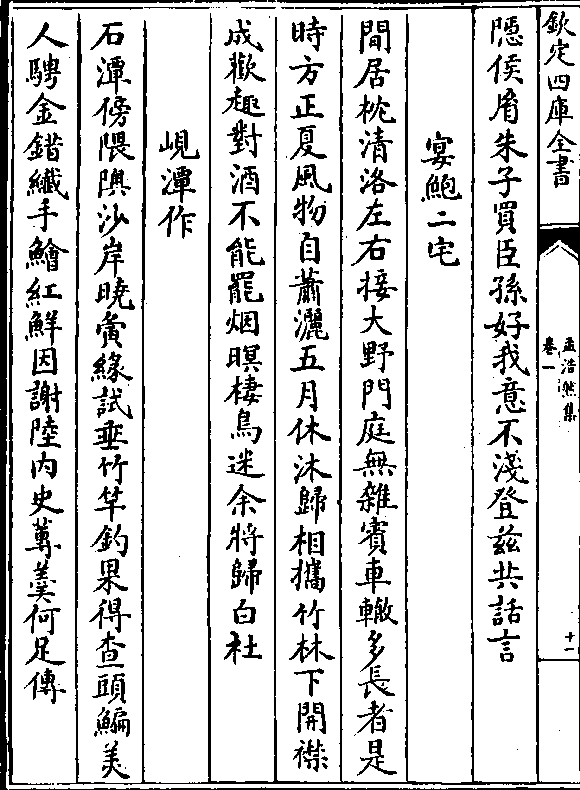 欽定四庫全書
孟浩然集
卷一
十一
隠侯爲朱子買臣孫好我意不淺登兹共話言
宴鮑二宅
閒居枕清洛左右接大野門庭無雜賓車轍多長者是
時方正夏風物自蕭灑五月休沐歸相攜竹林下開襟
成歡趣對酒不能罷烟暝棲鳥迷余將歸白社
峴潭作
石潭傍隈隩沙岸曉夤緣試垂竹竿釣果得查頭鯿美
人騁金錯纎手鱠紅鮮因謝陸内史蓴羮何足傳